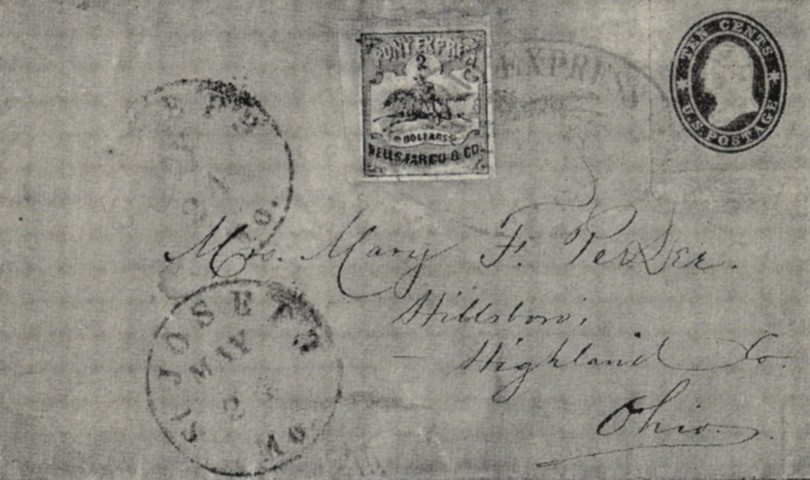 PONY EXPRESS
2
DOLLARS
WELLS FARGO & CO.
EXPRESS
TEN CENTS
U.S. POSTAGE
Mrs. Mary F.
Hillsboro,
Highland Co.
Ohio.
ST JOSEPH
MAY
2
Mo.